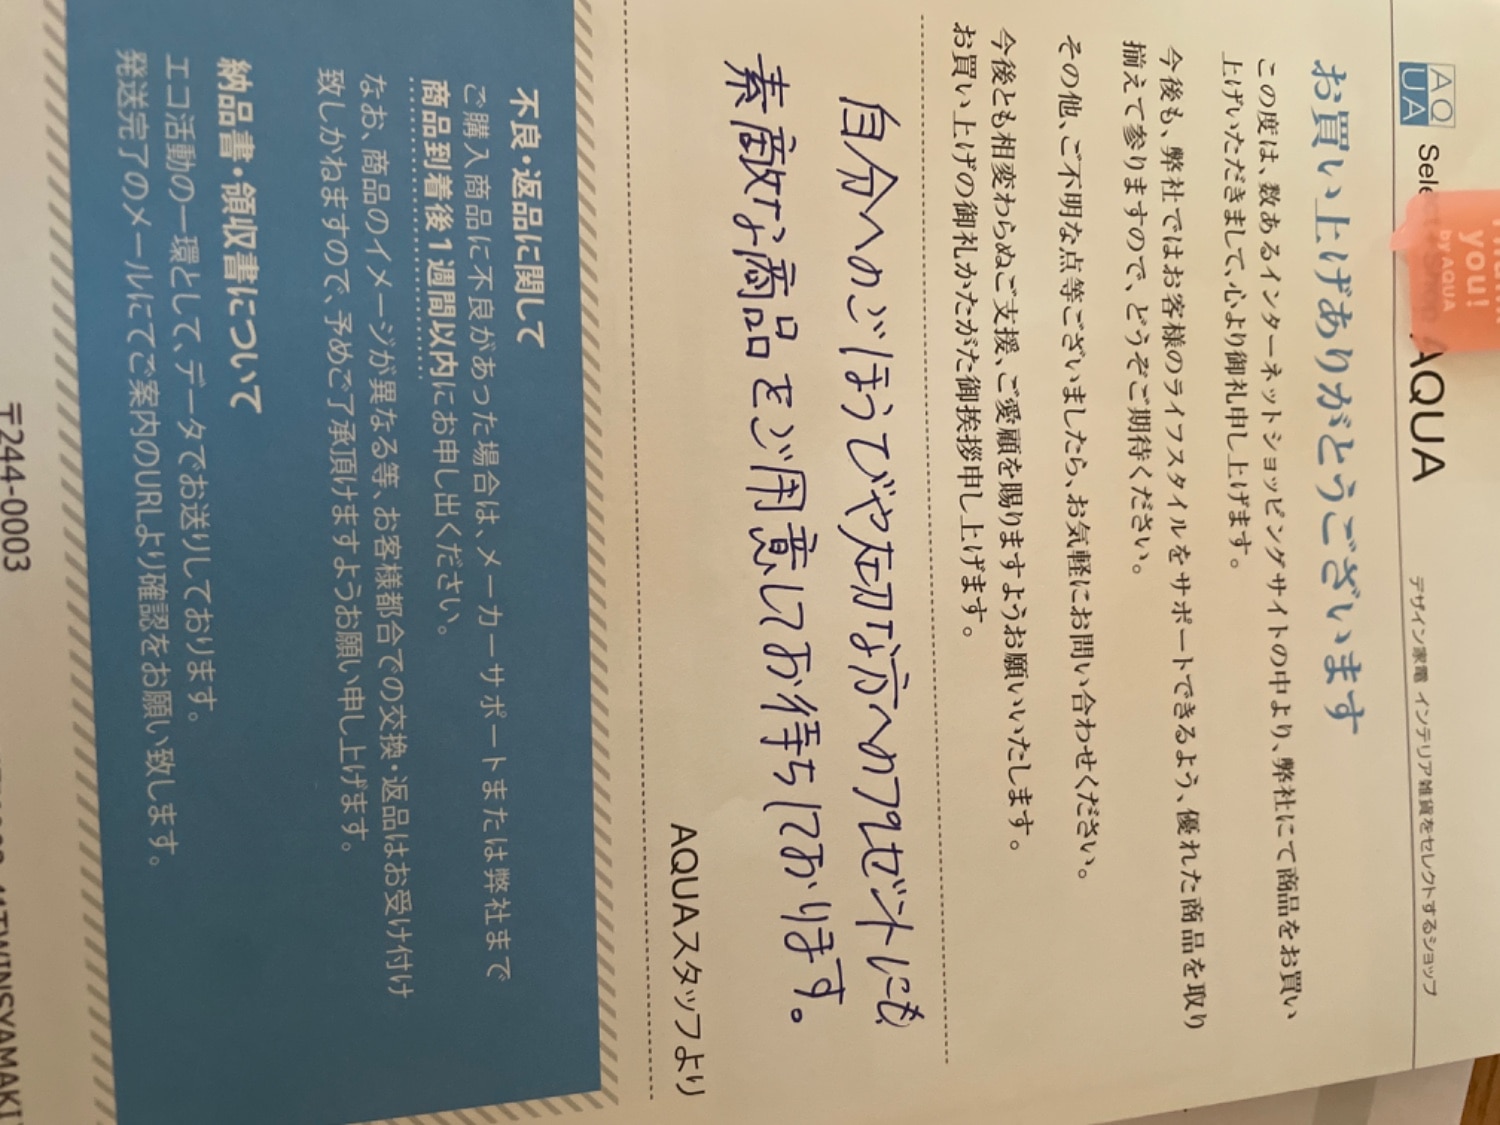 AQ
UA
Sele AQUA
デザイン家電 インテリア雑貨をセレクトするショップ
you!
by AQUA
お買い上げありがとうございます
この度は、数あるインターネットショッピングサイトの中より、弊社にて商品をお買い
上げいただきまして、心より御礼申し上げます。
今後も、弊社ではお客様のライフスタイルをサポートできるよう、優れた商品を取り
揃えて参りますので、どうぞご期待ください。
その他、ご不明な点等ございましたら、お気軽にお問い合わせください。
今後とも相変わらぬご支援、ご愛顧を賜りますようお願いいたします。
お買い上げの御礼かたがた御挨拶申し上げます。
自分へのごほうびや大切な方へのプレゼントにも
素敵な商品をご用意してお待ちしております。
AQUAスタッフより
不良・返品に関して
ご購入商品に不良があった場合は、メーカーサポートまたは弊社まで
商品到着後1週間以内にお申し出ください。
なお、商品のイメージが異なる等、お客様都合での交換・返品はお受け付け
致しかねますので、予めご了承頂けますようお願い申し上げます。
納品書・領収書について
エコ活動の一環として、データでお送りしております。
発送完了のメールにてご案内のURLより確認をお願い致します。
〒244-0003
TWINSYAMAKI